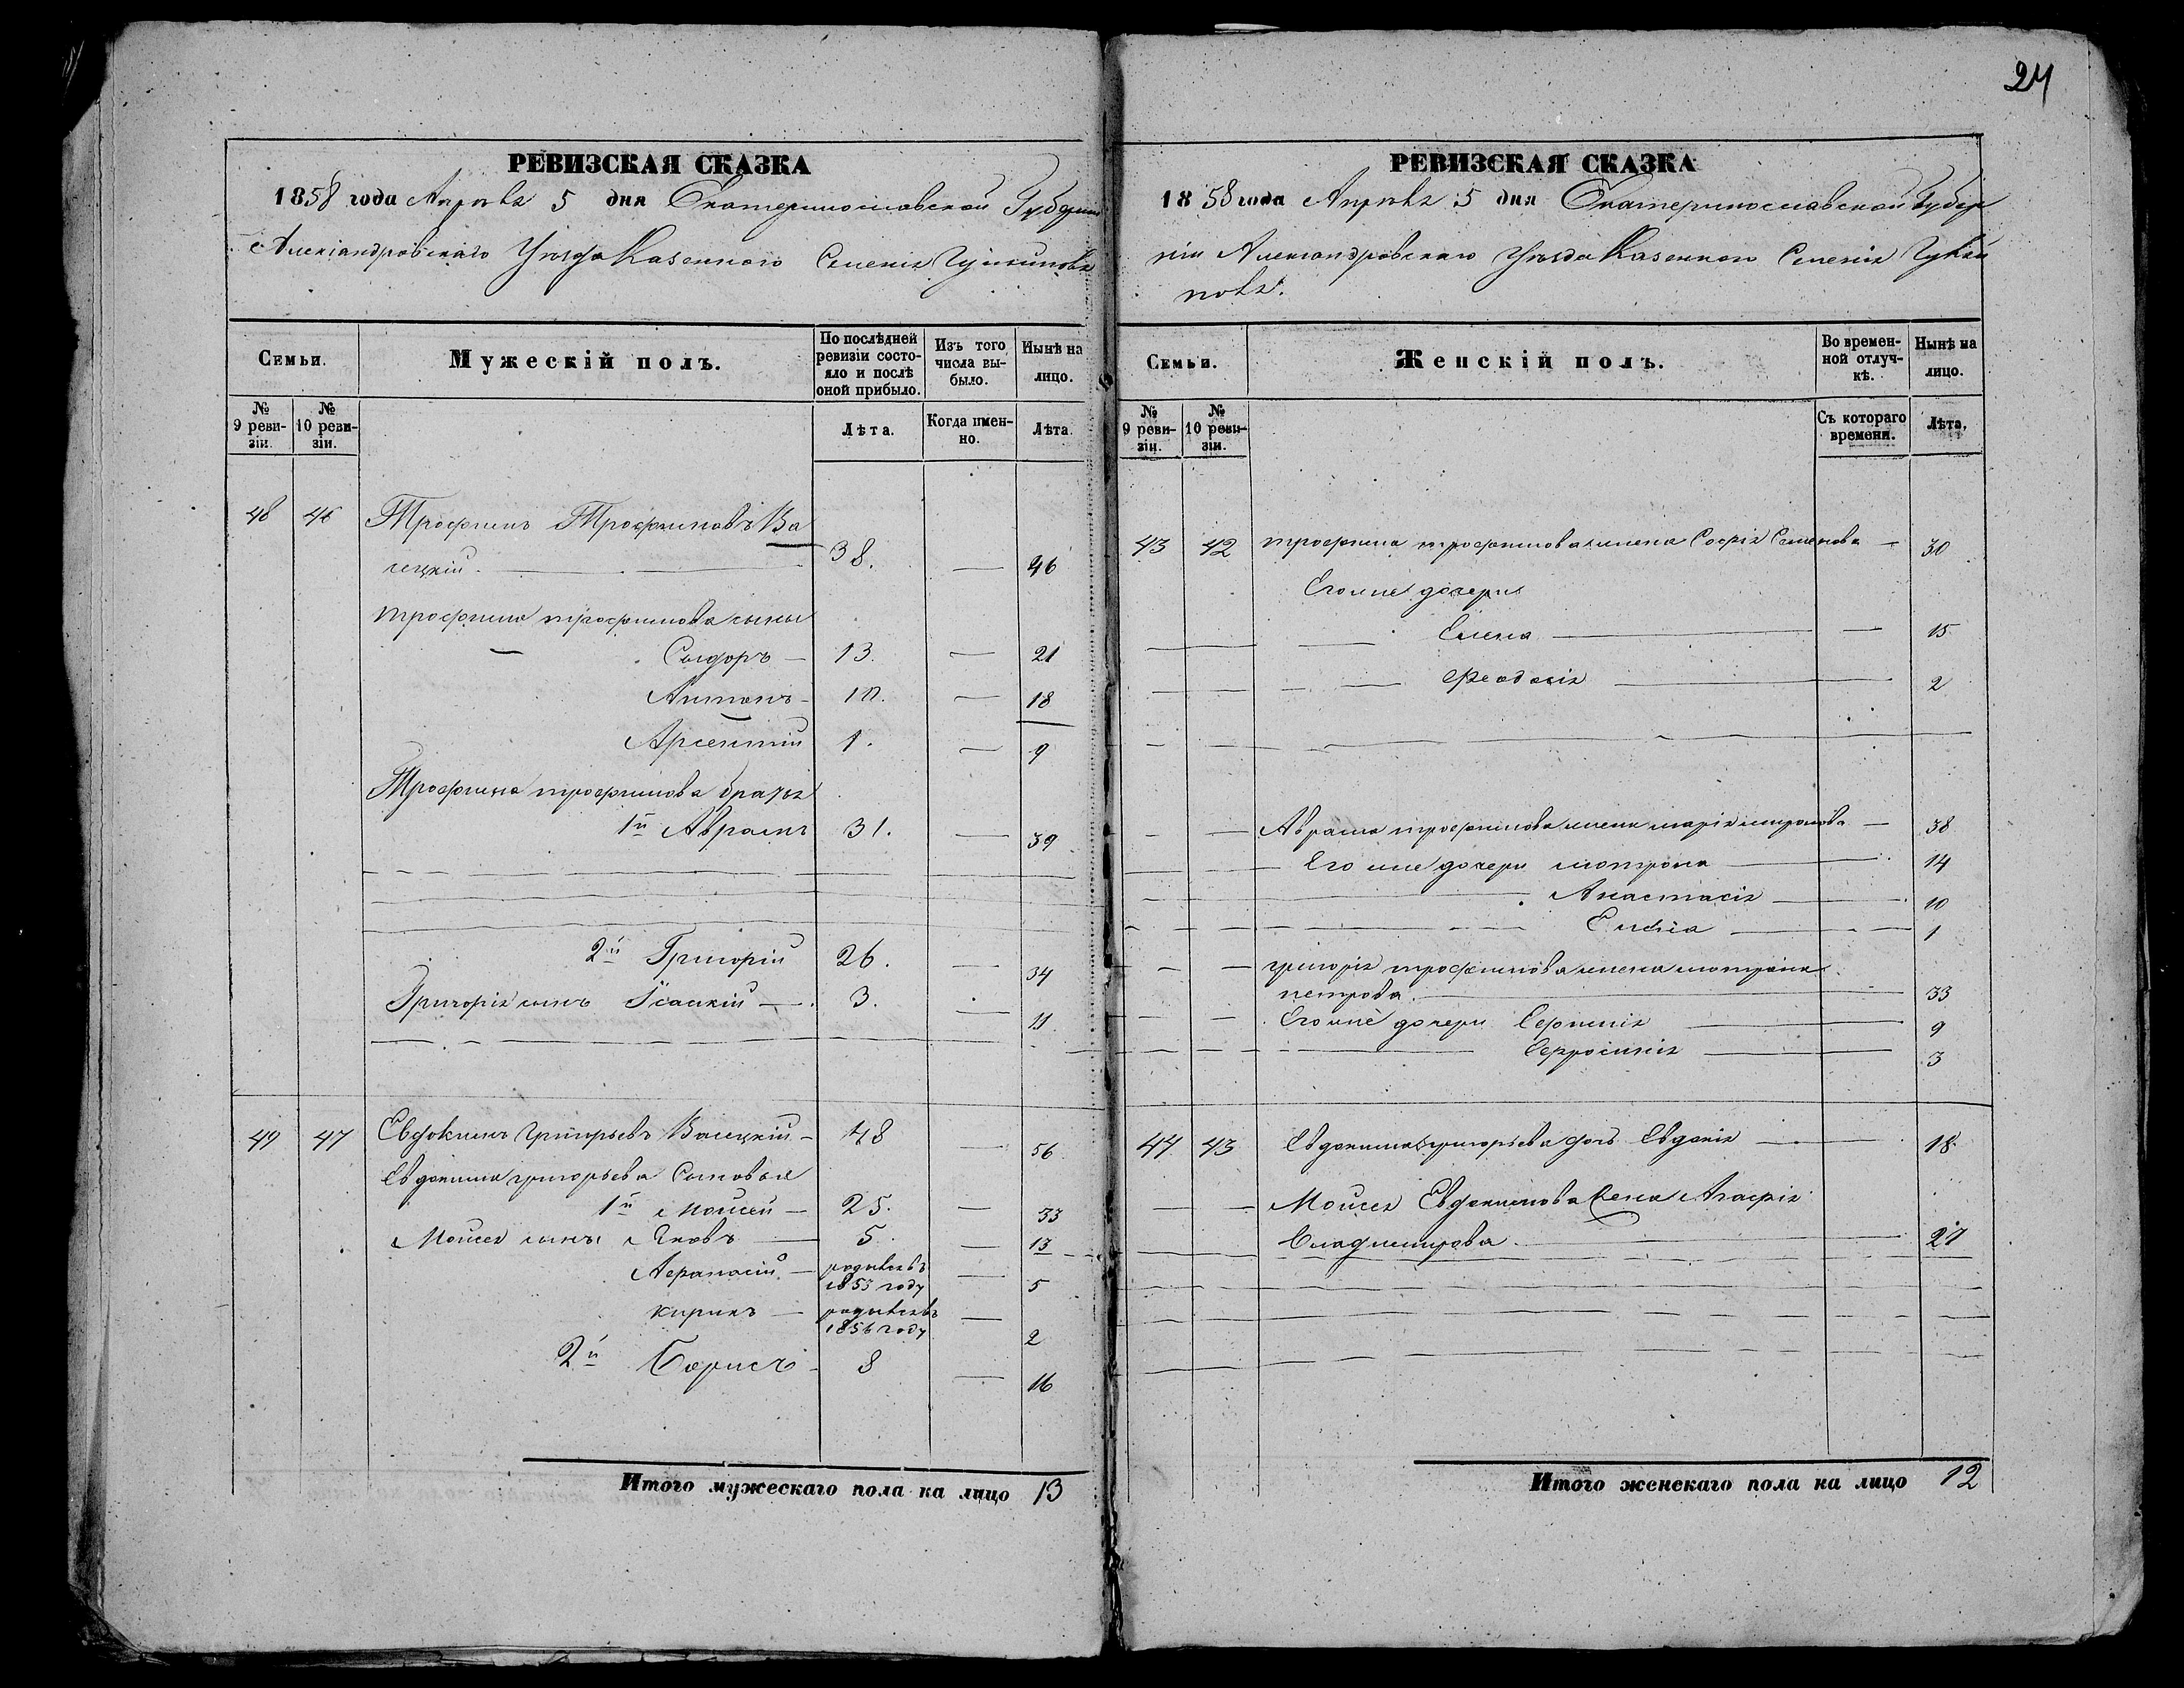 24
РЕВИЗСКАЯ СКАЗКА
1858 года Апрѣля 5 дня Екатеринославской Губерніи
Александровскаго Уѣзда Казенного Селенія
Семьи.
Мужескій полъ.
По послѣдней ревизіи состояло и послѣ оной прибыло.
Изъ того числа выбыло.
Нынѣ на лицо.
№ 9 ревизіи.
№ 10 ревизіи.
Лѣта.
Когда именно.
Лѣта.
48 46 Трофимъ Трофимовъ Ва
лецкій 38. 46
Трофима Трофимова сыны
Сыдоръ 13. 21
Антонъ 10. 18
Арсентій 1. 9
Трофима трофимова братья
1й Аврамъ 31. 39
2й Григорій 26. 34
Григорія сынъ Ісаакій 3. 11
49 47 Евдокимъ Григорьевъ Валецкій 48 56
Евдокима григорьева Сыновья
1й Моисей 25. 33
Моисея сыны Яковъ 5. 13
Афанасій родился въ 1853 году 5
Кирикъ родился въ 1856 году 2
2й Борисъ 8 16
Итого мужескаго пола на лицо 13
РЕВИЗСКАЯ СКАЗКА
1858 года Апрѣля 5 дня Екатеринославской Губер
ніи Александровскаго Уѣзда Казенного Селенія
Семьи.
Женскій полъ.
Во временной отлучкѣ.
Нынѣ на лицо.
№ 9 ревизіи.
№ 10 ревизіи.
Съ котораго времени.
Лѣта.
43 42 трофима трофимова жена Софія Семенова 30
Его же дочери
Елена 15
Феодосія 2
Аврама трофимова жена марія миронова 38
Его же дочери мотрона 14
Анастасія 10
1
григорія трофимова жена мотрона
петрова 33
Его же дочери Евфимія 9
Евфросинія 3
44 43 Евдокима григорьева дочь Евдокія 18
Моисея Евдокимова жена Агафія
Владимирова 27
Итого женскаго пола на лицо 12